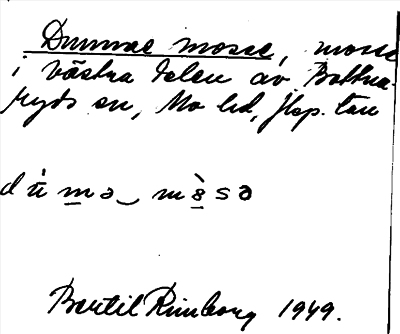 Dummae mosse, mosse
i västra delen av Bottna-
ryds sn, Mo hd, Jkp. län
dùmə‿mòsə
Bertil Rimborg 1949.